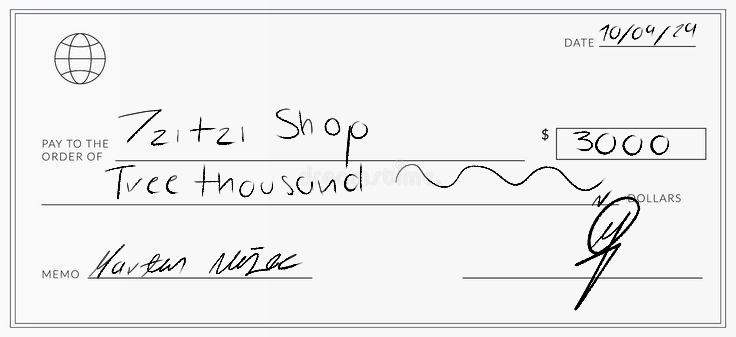 DATE 10/09/24
PAY TO THE ORDER OF Tzitzi Shop
$ 3000
Tree thousand DOLLARS
MEMO